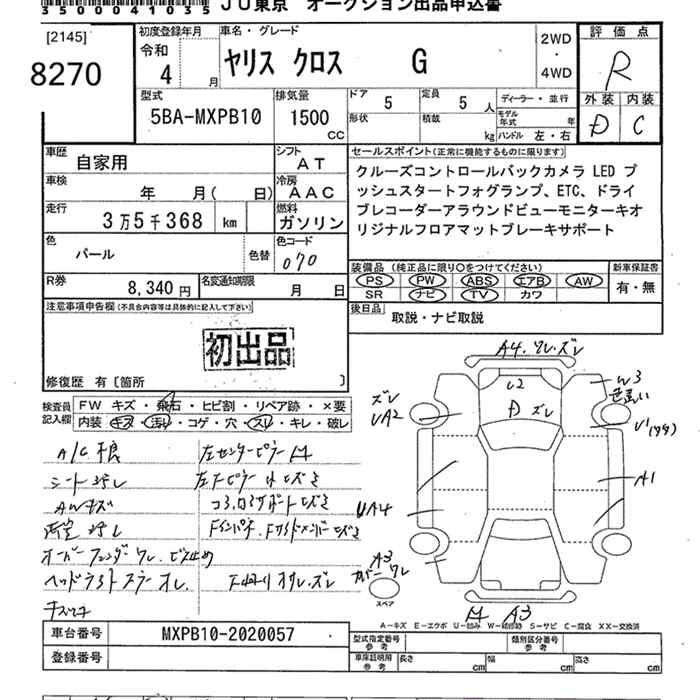 35004041035 JU東京 オークション出品申込書
[2145]
8270
初度登録年月
令和
4 月
車名・グレード
ヤリス クロス G
2WD
・
4WD
評価点
R
型式
5BA-MXPB10
排気量
1500
CC
ドア 5
定員 5 人
形状
積載 kg
ディーラー・並行
モデル年式 年
ハンドル 左・右
外装 内装
D C
車歴 自家用
シフト AT
車検 年 月( 日)
冷房 AAC
走行 3万5千368 km
燃料 ガソリン
色 パール 色替
色コード 070
R券 8,340円
名変通知期限 月 日
セールスポイント(正常に機能するものに限ります)
クルーズコントロールバックカメラ LED プ
ッシュスタートフォグランプ、ETC、ドライ
ブレコーダーアラウンドビューモニターキオ
リジナルフロアマットブレーキサポート
装備品 (純正品に限り○をつけてください)
PS PW ABS エアB AW
SR ナビ TV カワ
新車保証書
有・無
後日品 取説・ナビ取説
注意事項申告欄(不具合内容等は具体的に記入して下さい)
初出品
修復歴 有〔箇所 〕
検査員記入欄
FW キズ・飛石・ヒビ割・リペア跡・×要
内装 キズ・汚れ・コゲ・穴・スレ・キレ・破レ
A/C不良
シート汚レ
AWキズ
オーバーフェンダワレ、ビス止め
左センターピラー
A4.ワレ.ズレ
U2
D ズレ
ズレ
UA2
W3
U1
A1
UA4
A3
カバーワレ
スペア
A3
A-キズ E-エクボ U-凹み W-補修跡 S-サビ C-腐食 XX-交換済
車台番号 MXPB10-2020057
登録番号
型式指定番号 参考
類別区分番号 参考
車庫証明用 参考
長さ cm 幅 cm 高さ cm